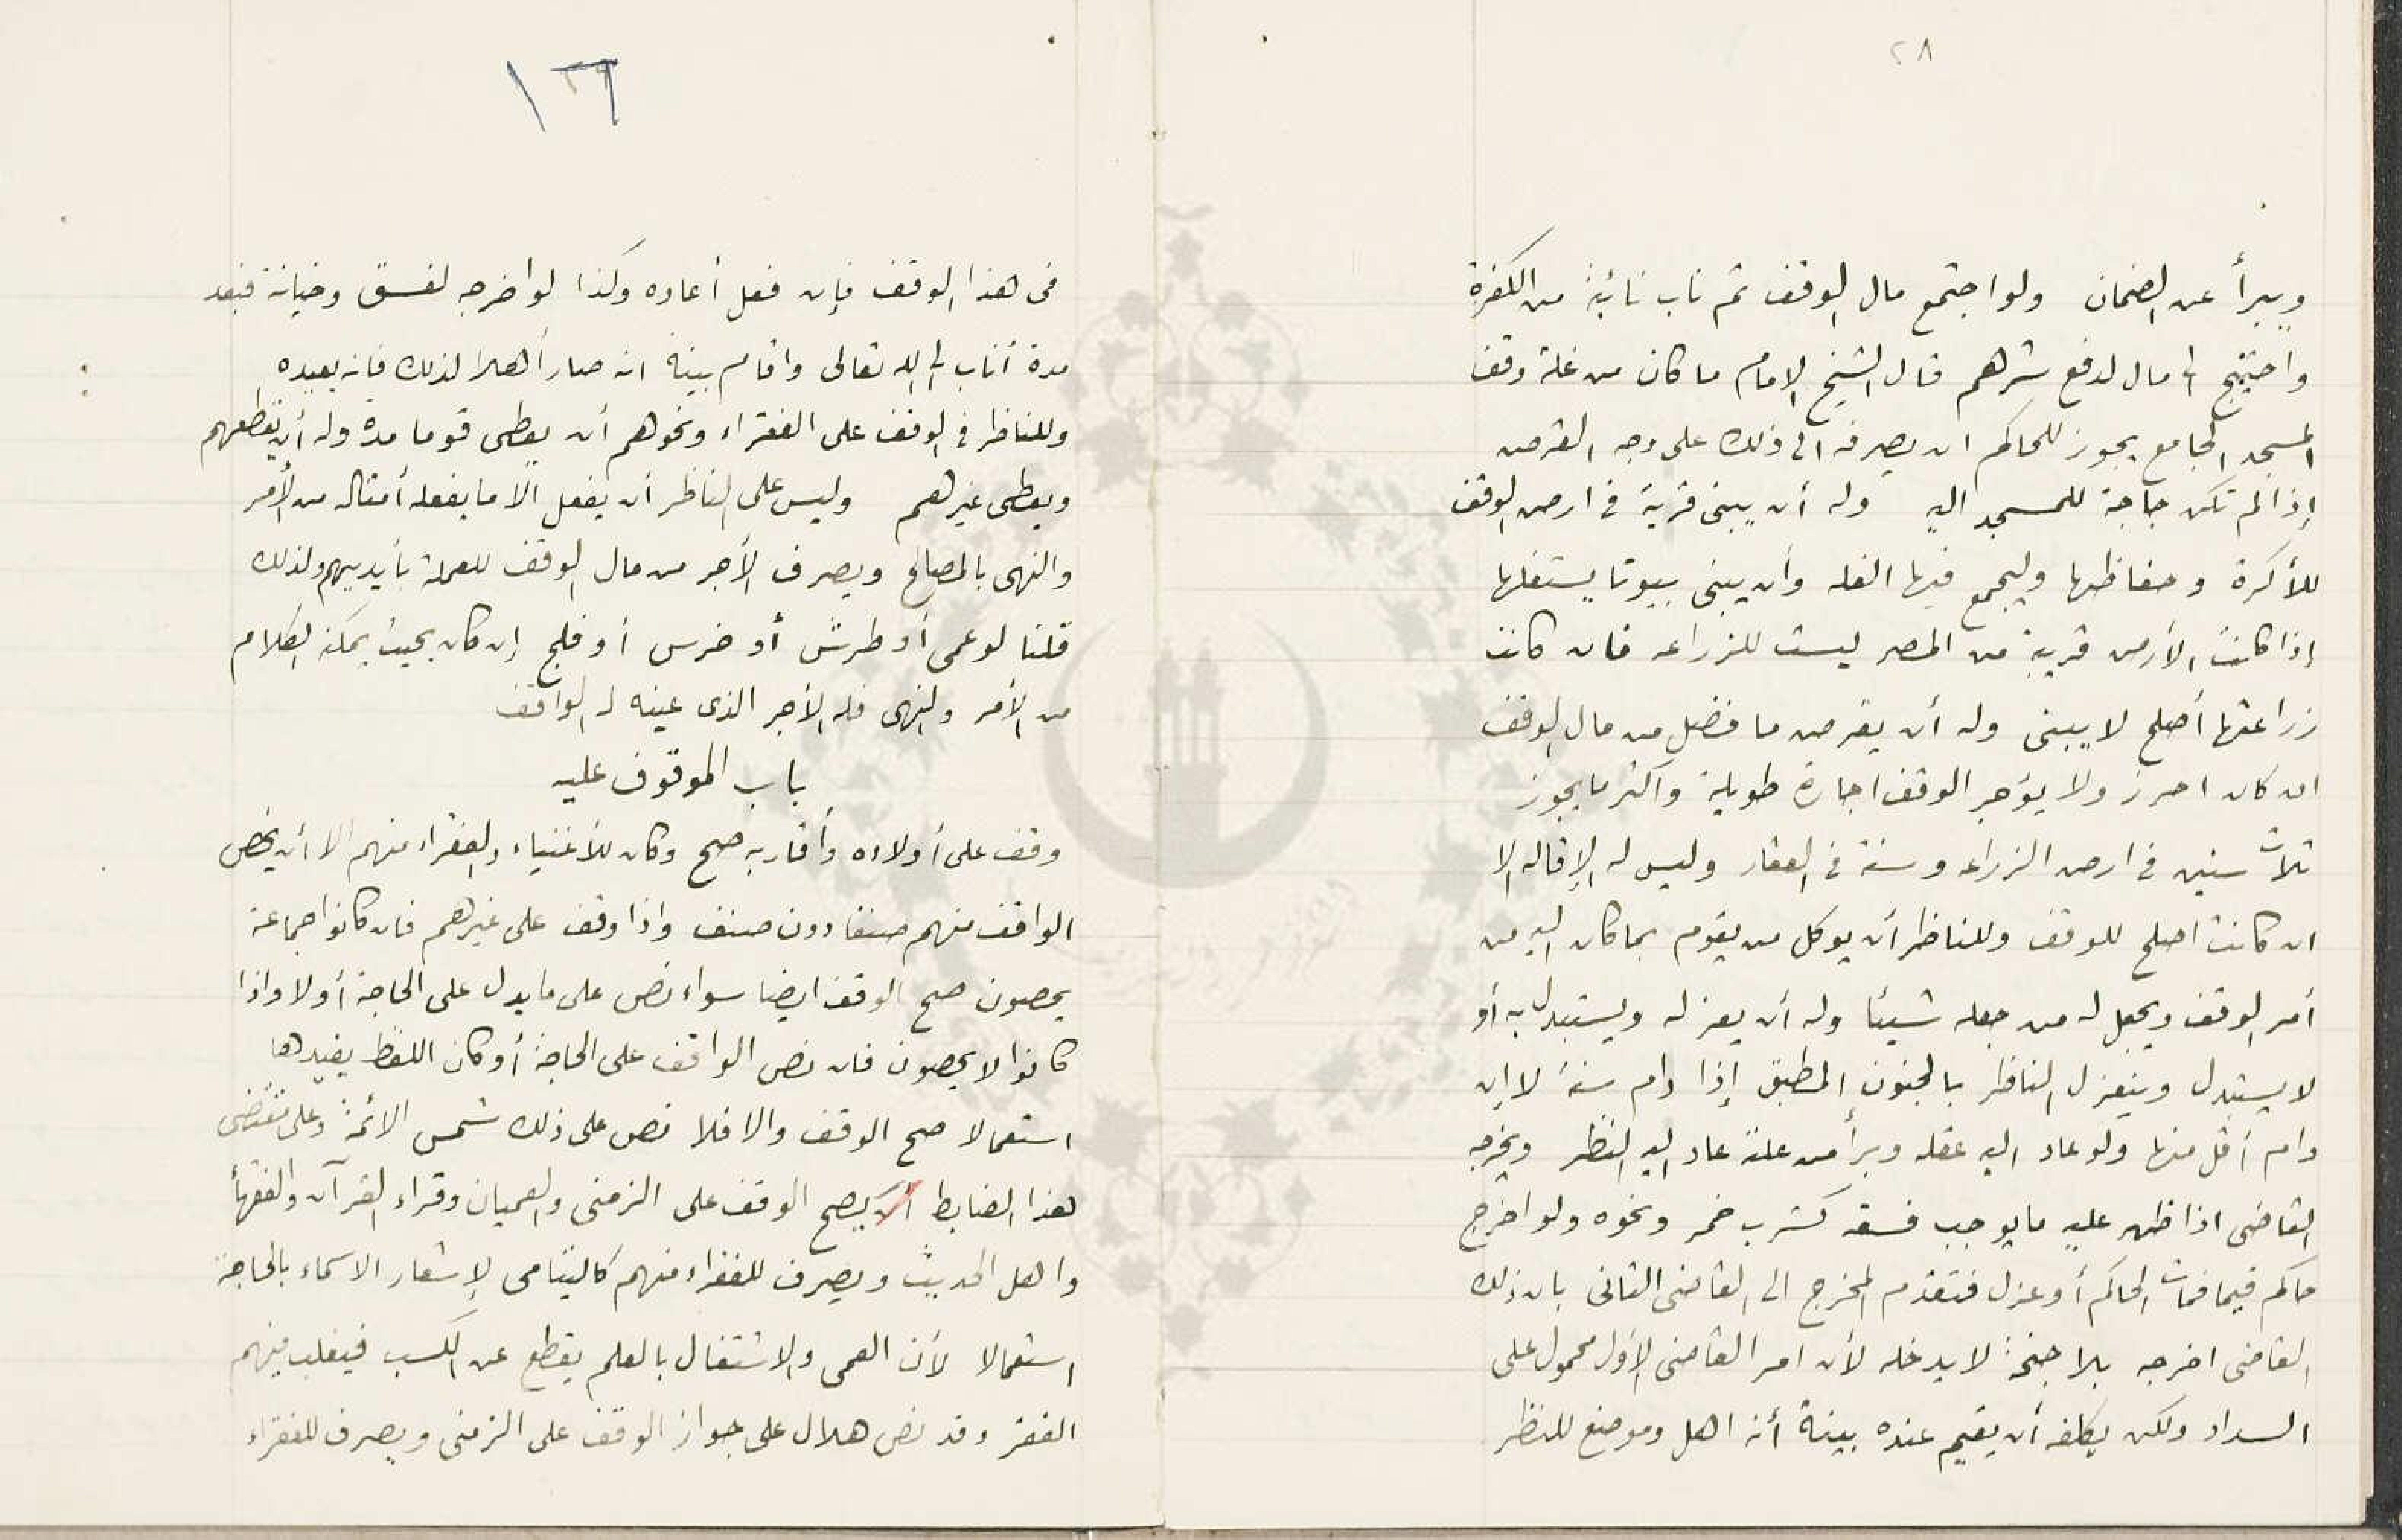 ٢٨
ويبرأ عن الضمان ولو اجتمع مال الوقف ثم ناب نائبة من الكفرة
واحتيج الى مال لدفع شرهم قال الشيخ الإمام ما كان من غلة وقف
المسجد الجامع يجوز للحاكم ان يصرفه الى ذلك على وجه القرض
إذا لم تكن حاجة للمسجد اليه وله أن يبنى قرية فى ارض الوقف
للأكرة وحفاظها وليجمع فيها الغله وأن يبنى بيوتا يستغلها
إذا كانت الأرض قريبة من المصر ليست للزراعه فان كانت
زراعتها أصلح لا يبنى وله أن يقرض ما فضل من مال الوقف
ان كان احرز ولا يؤجر الوقف اجارة طويلة وأكثر ما يجوز
ثلاث سنين فى ارض الزراعه وسنة فى العقار وليس له الإقاله الا
ان كانت اصلح للوقف وللناظر أن يوكل من يقوم بما كان اليه من
أمر الوقف ويجعل له من جعله شيئا وله أن يعزله ويستبدل به أو
لا يستبدل وينعزل الناظر بالجنون المطبق إذا دام سنة لا إن
دام أقل منها ولو عاد اليه عقله وبرأ من علته عاد اليه النظر ويخرجه
القاضى اذا ظهر عليه ما يوجب فسقه كشرب خمر ونحوه ولو اخرج
حاكم قيما فمات الحاكم أو عزل فتقدم المخرج الى القاضى الثانى بان ذلك
القاضى اخرجه بلا جنحة لا يدخله لأن امر القاضى الأول محمول على
السداد ولكن يكلفه أن يقيم عنده بينة أنه اهل وموضع للنظر
١٢٦
فى هذا الوقف فإن فعل أعاده وكذا لو اخرجه لفسق وخيانة فبعد
مدة أناب الى الله تعالى واقام بينة انه صار أهلا لذلك فانه يعيده
وللناظر فى الوقف على الفقراء ونحوهم أن يعطى قوما مدة وله أن يقطعهم
ويعطى غيرهم وليس على الناظر أن يفعل الا ما يفعله أمثاله من الأمر
والنهى بالمصالح ويصرف الأجر من مال الوقف للعملة بأيديهم ولذلك
قلنا لو عمى أو طرش أو خرس أو فلج إن كان بحيث يمكنه الكلام
من الأمر والنهى فله الأجر الذى عينه له الواقف
باب الموقوف عليه
وقف على أولاده وأقاربه صح وكان للأغنياء والفقراء منهم الا أن يخص
الواقف منهم صنفا دون صنف واذا وقف على غيرهم فان كانوا جماعة
يحصون صح الوقف ايضا سواء نص على ما يدل على الحاجة أولا واذا
كانوا لا يحصون فان نص الواقف على الحاجة أو كان اللفظ يفيدها
استعمالا صح الوقف والا فلا نص على ذلك شمس الائمة وعلى مقتضى
هذا الضابط يصح الوقف على الزمنى والعميان وقراء القرآن والفقهأ
واهل الحديث ويصرف للفقراء منهم كاليتامى لإشعار الاسماء بالحاجة
استعمالا لأن العمى والاشتغال بالعلم يقطع عن الكسب فيغلب فيهم
الفقر وقد نص هلال على جواز الوقف على الزمنى ويصرف للفقراء